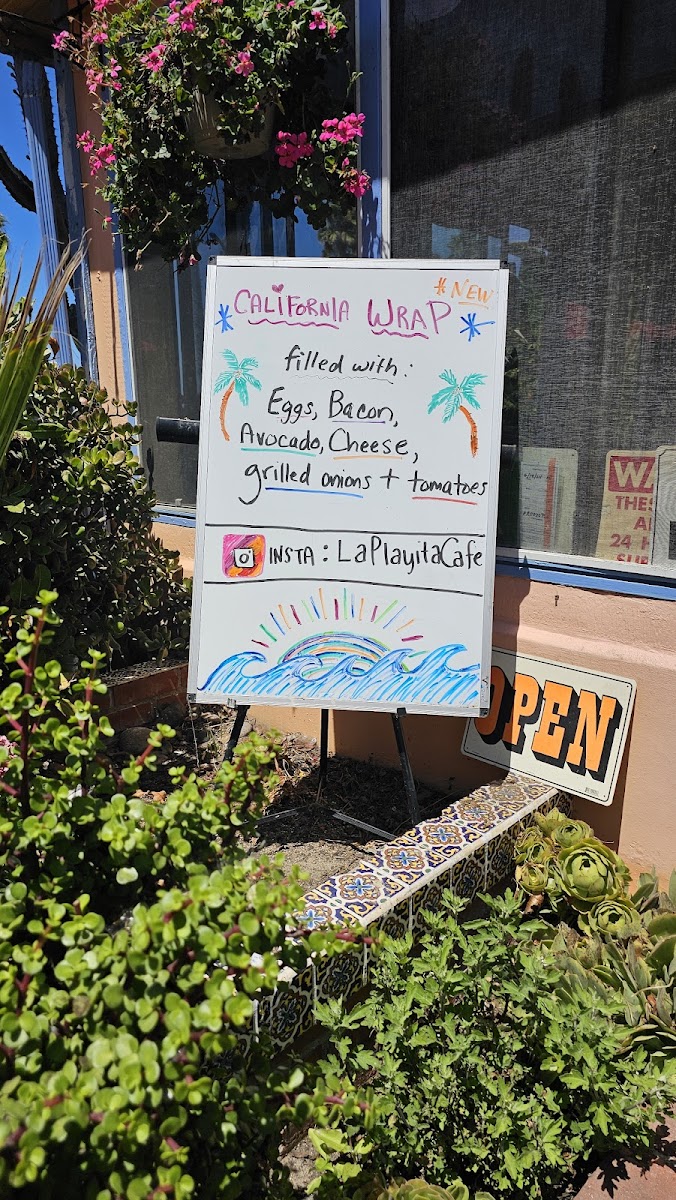 *NEW
CALIFORNIA WRAP
filled with:
Eggs, Bacon,
Avocado, Cheese,
grilled onions + tomatoes
INSTA: LaPlayitaCafe
OPEN
WA
THES
A
24 H
SU